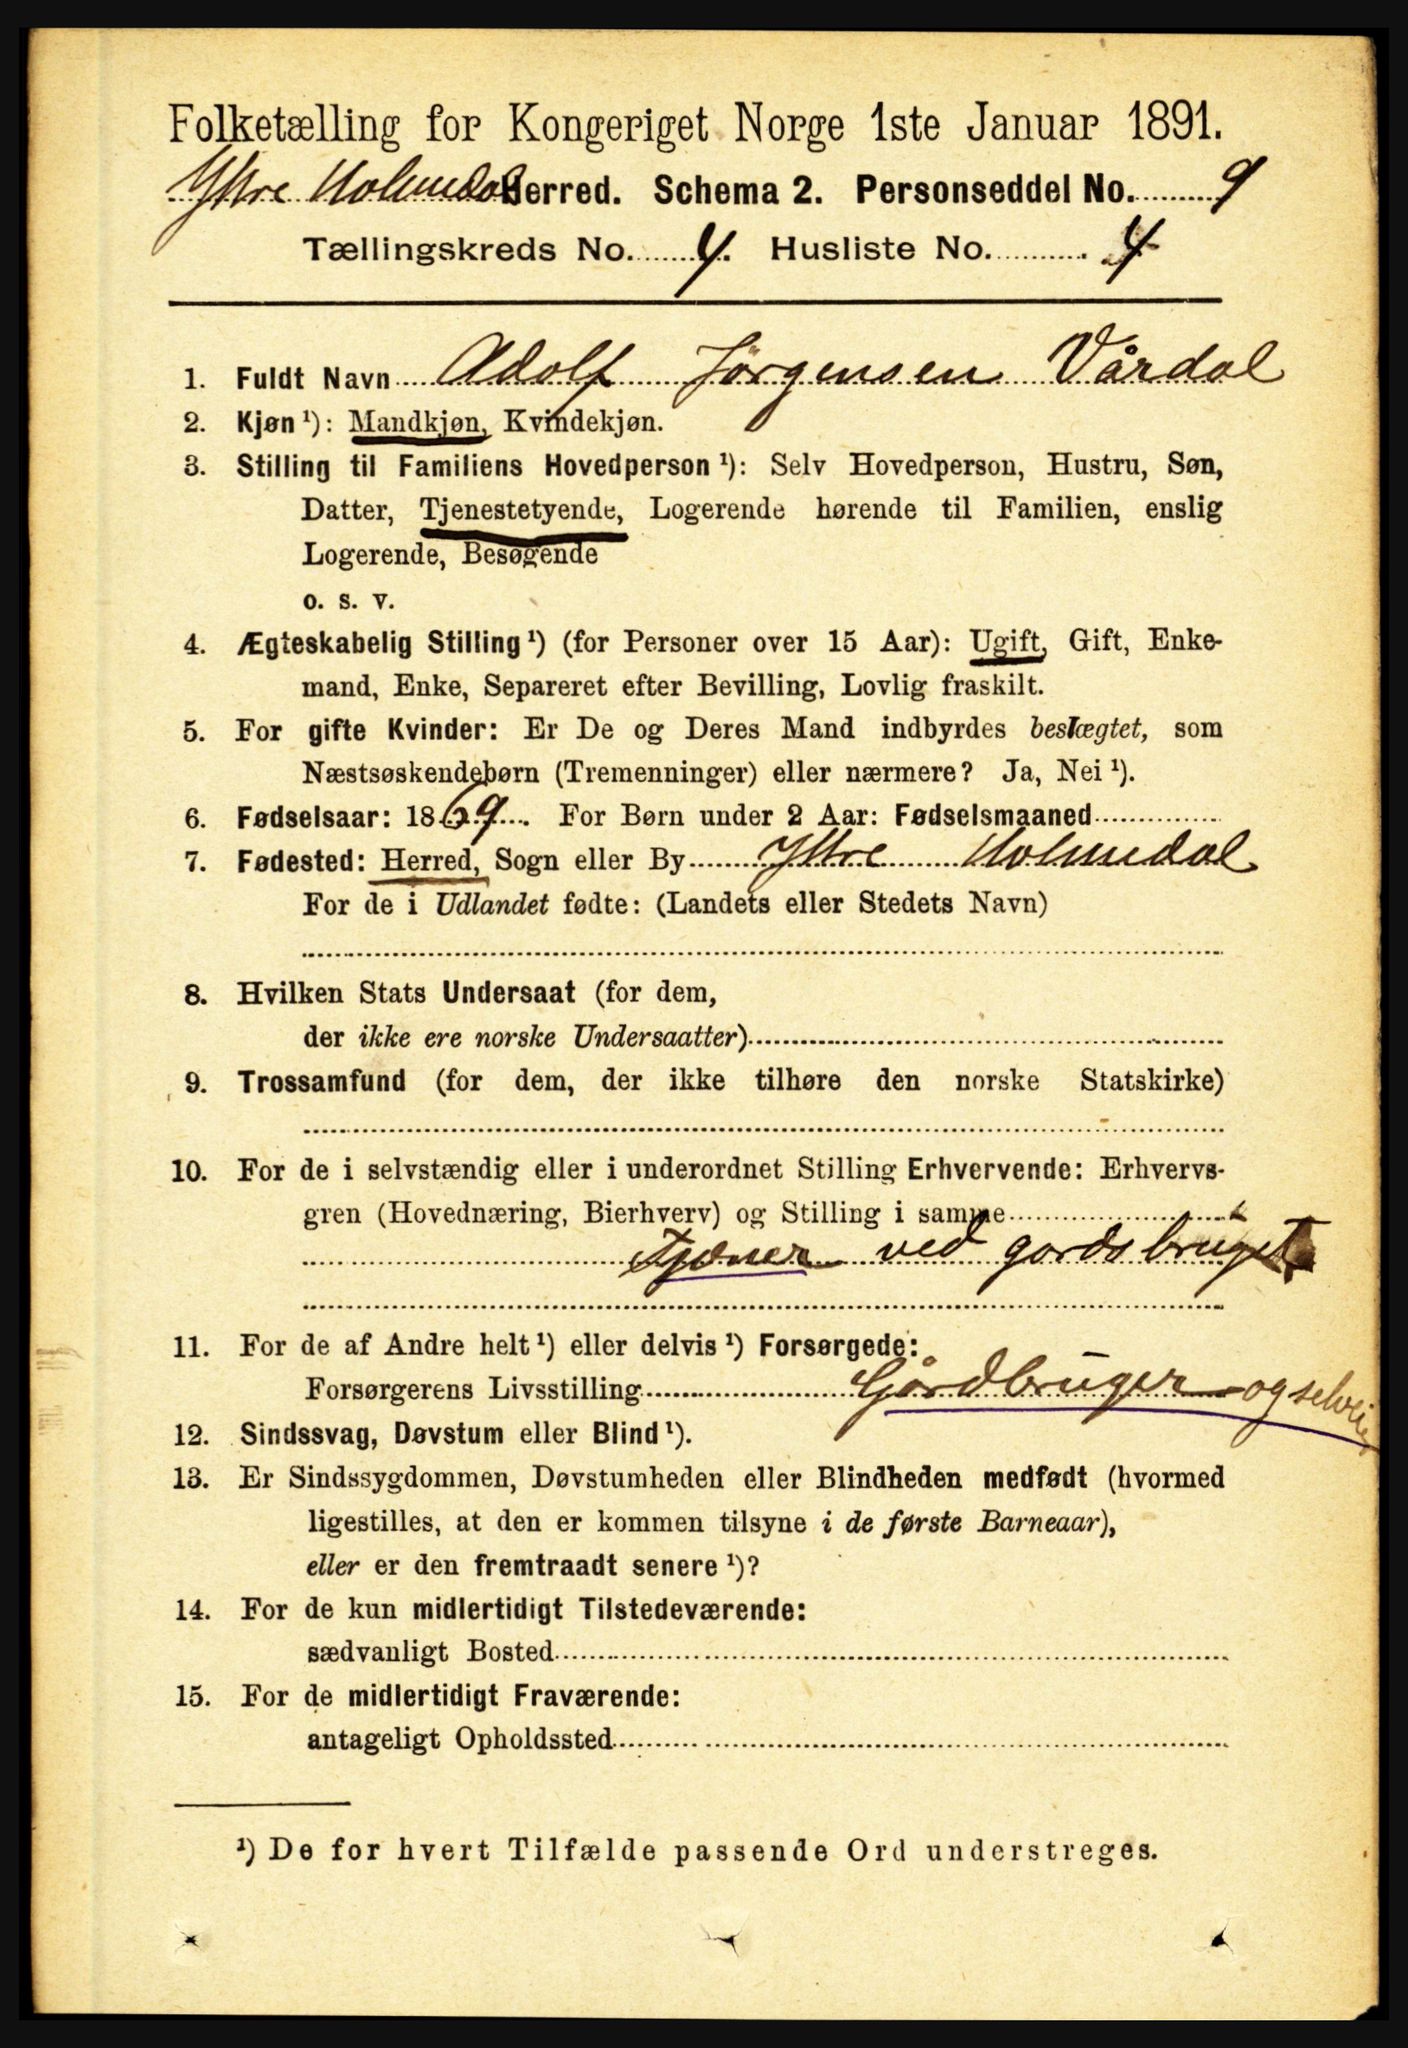 Folketælling for Kongeriget Norge 1ste Januar 1891.
Yttre Holmedal Herred. Schema 2. Personseddel No. 9
Tællingskreds No. 4. Husliste No. 4
1. Fuldt Navn Adolf Jørgensen Vårdal
2. Kjøn ¹): Mandkjøn, Kvindekjøn.
3. Stilling til Familiens Hovedperson ¹): Selv Hovedperson, Hustru, Søn,
Datter, Tjenestetyende, Logerende hørende til Familien, enslig
Logerende, Besøgende
o. s. v.
4. Ægteskabelig Stilling ¹) (for Personer over 15 Aar): Ugift, Gift, Enke-
mand, Enke, Separeret efter Bevilling, Lovlig fraskilt.
5. For gifte Kvinder: Er De og Deres Mand indbyrdes beslægtet, som
Næstsøskendebørn (Tremenninger) eller nærmere? Ja, Nei ¹).
6. Fødselsaar: 1869. For Børn under 2 Aar: Fødselsmaaned
7. Fødested: Herred, Sogn eller By Yttre Holmedal
For de i Udlandet fødte: (Landets eller Stedets Navn)
8. Hvilken Stats Undersaat (for dem,
der ikke ere norske Undersaatter)
9. Trossamfund (for dem, der ikke tilhøre den norske Statskirke)
10. For de i selvstændig eller i underordnet Stilling Erhvervende: Erhvervs-
gren (Hovednæring, Bierhverv) og Stilling i samme
Tjæner ved gårdsbruget
11. For de af Andre helt ¹) eller delvis ¹) Forsørgede:
Forsørgerens Livsstilling Gårdbruger og selveier
12. Sindssvag, Døvstum eller Blind ¹).
13. Er Sindssygdommen, Døvstumheden eller Blindheden medfødt (hvormed
ligestilles, at den er kommen tilsyne i de første Barneaar),
eller er den fremtraadt senere ¹)?
14. For de kun midlertidigt Tilstedeværende:
sædvanligt Bosted
15. For de midlertidigt Fraværende:
antageligt Opholdssted
¹) De for hvert Tilfælde passende Ord understreges.